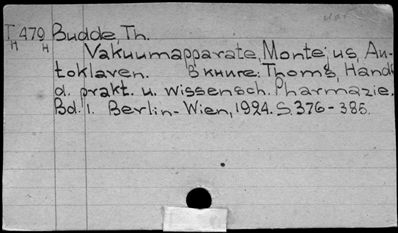 T 479 Budde, Th.
н н
Vakuumapparate, Montejus, Au-
toklaven. В книге: Thoms, Hand.
d. prakt. u. wissensch. Pharmazie.
Bd. 1. Berlin-Wien, 1924. S. 376-386.